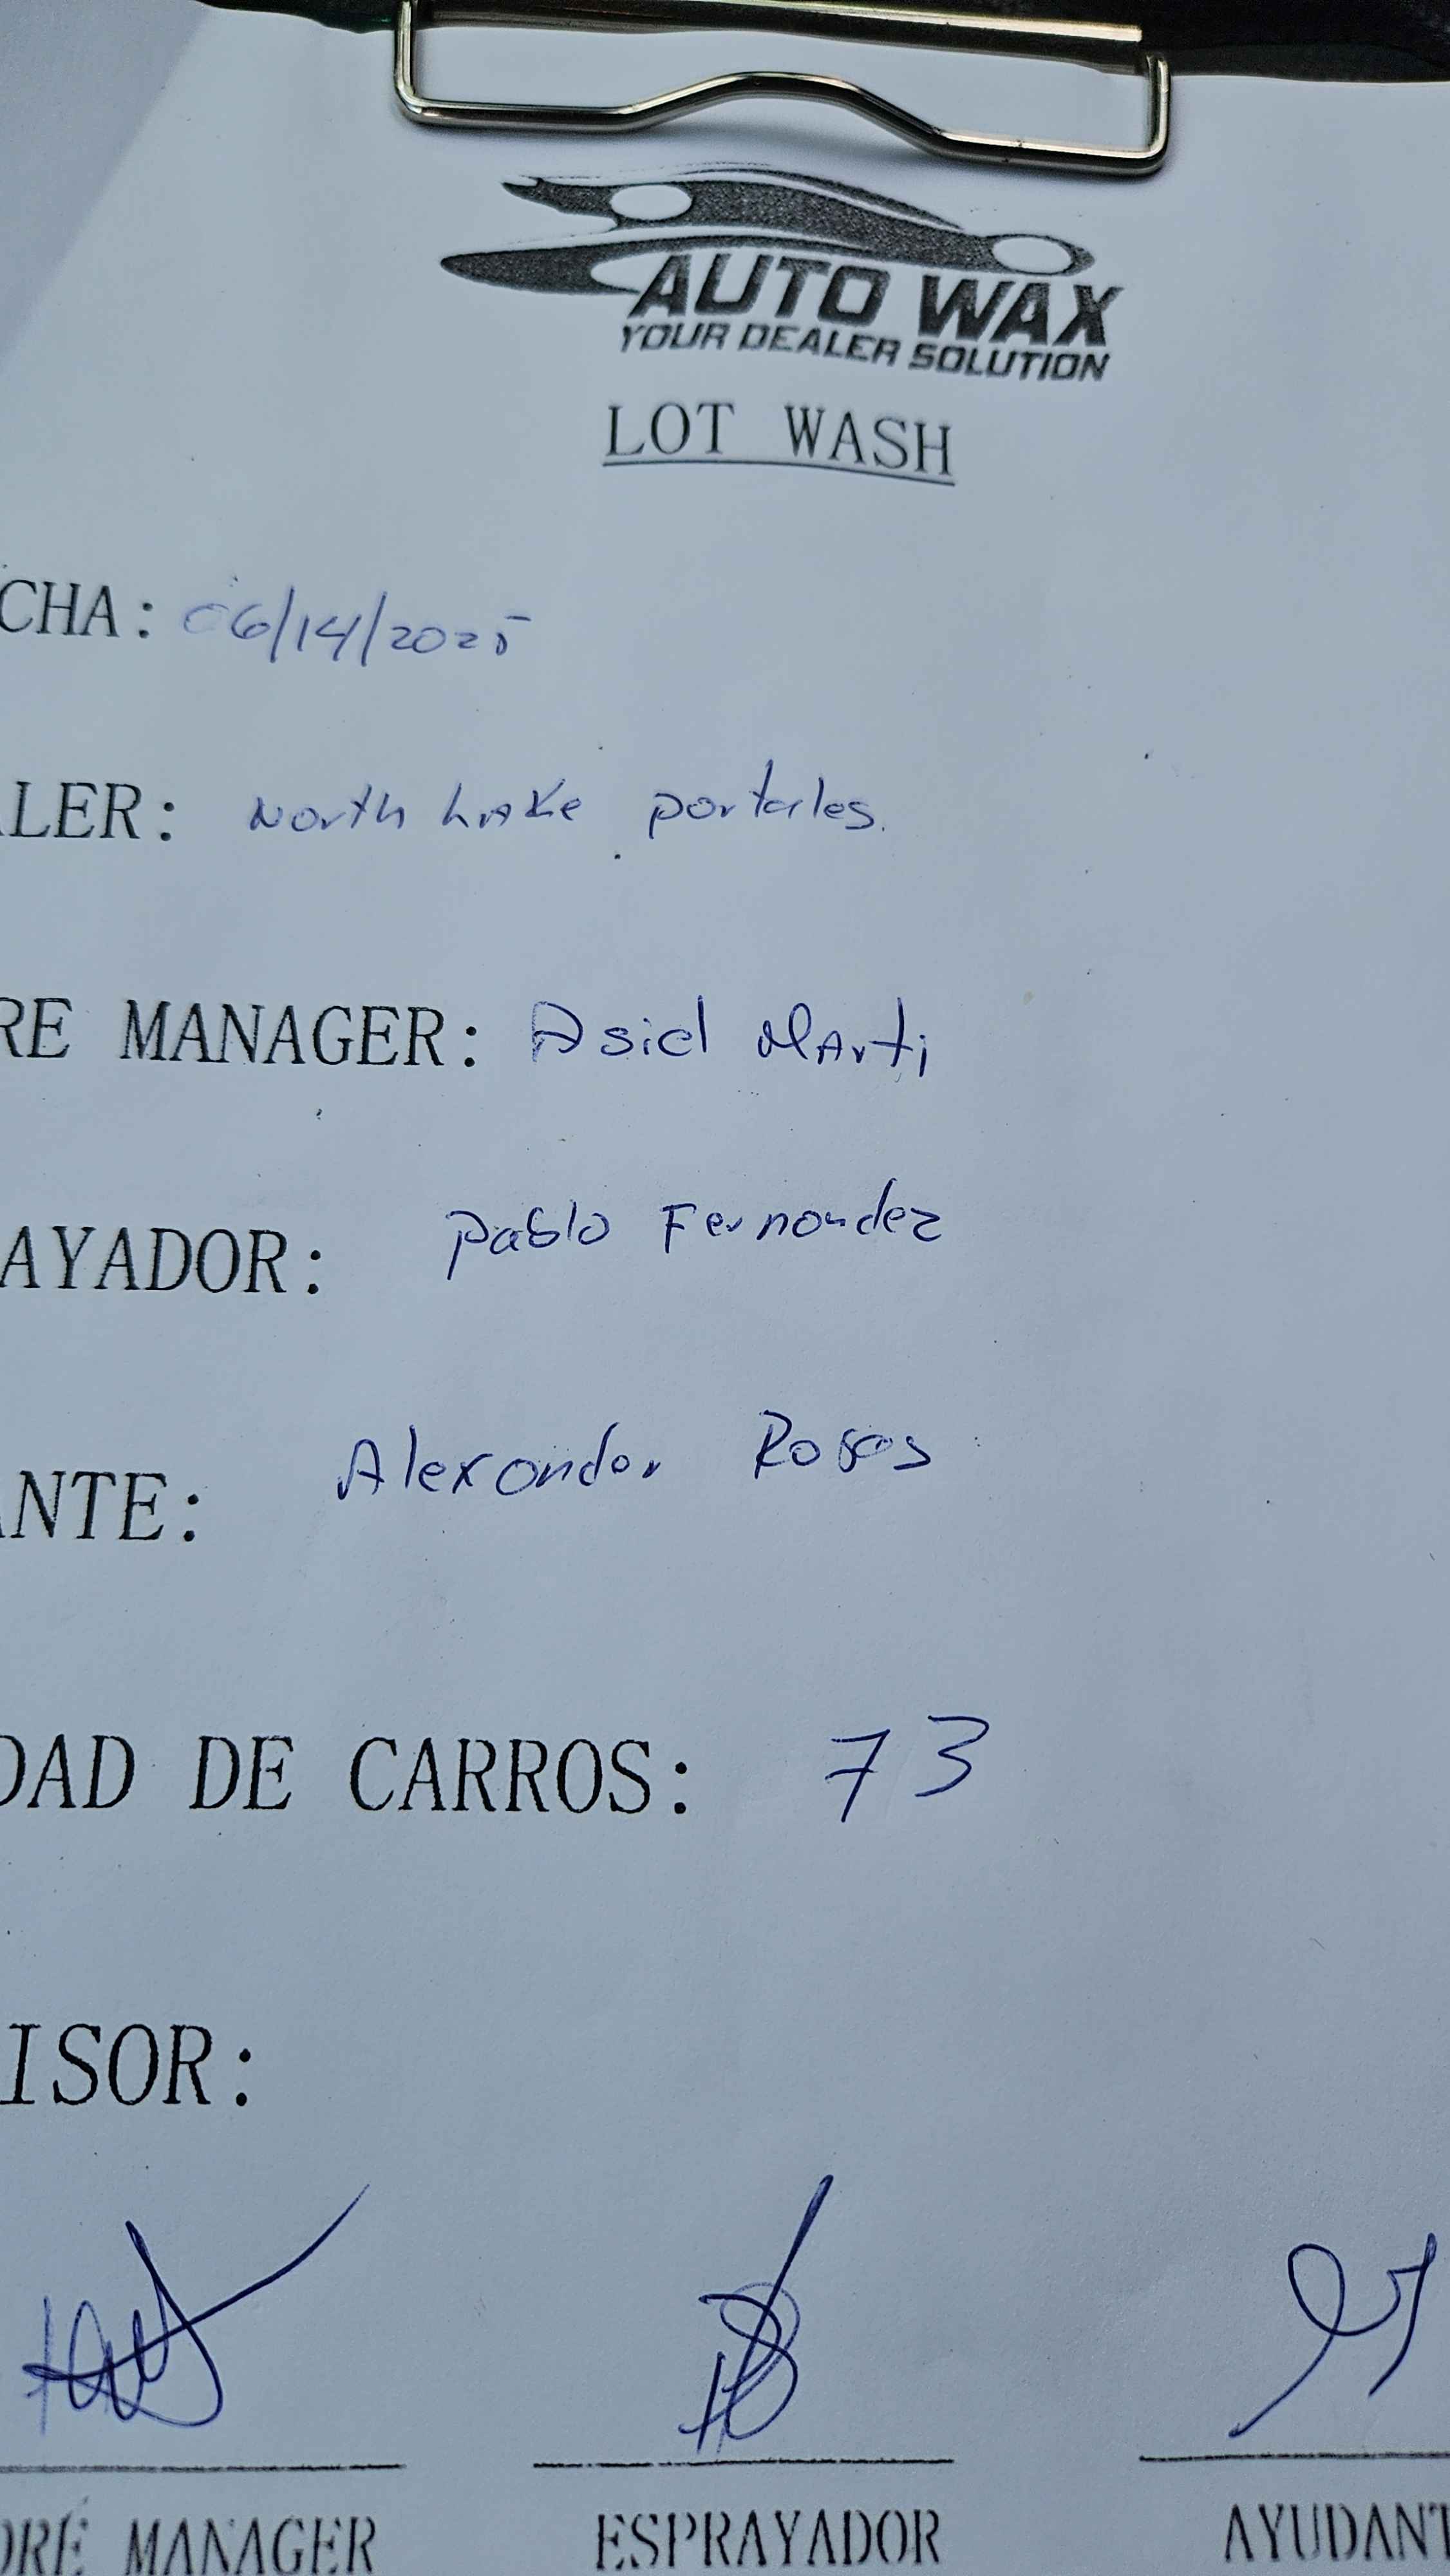 AUTO WAX
YOUR DEALER SOLUTION
LOT WASH
CHA: 06/14/2025
LER: North Lake portales.
RE MANAGER: Asiel Marti
AYADOR: Pablo Fernandez
ANTE: Alexander Rosas
DAD DE CARROS: 73
ISOR:
ORE MANAGER ESPRAYADOR AYUDANT